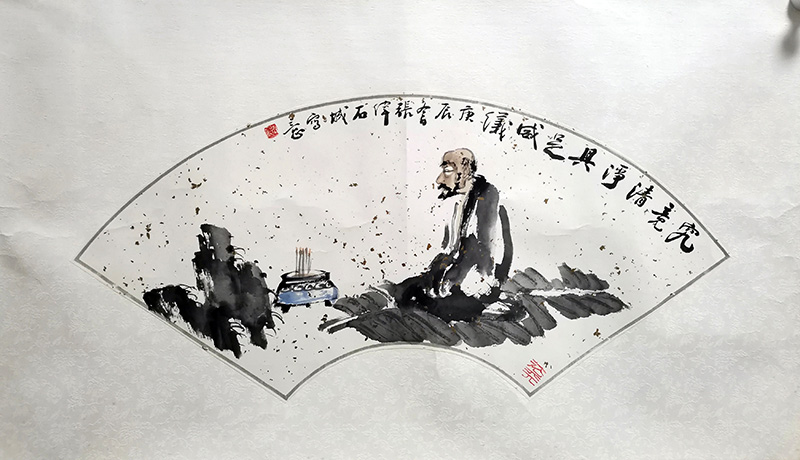 究竟清淨具足威儀庚辰年張偉石城寫意